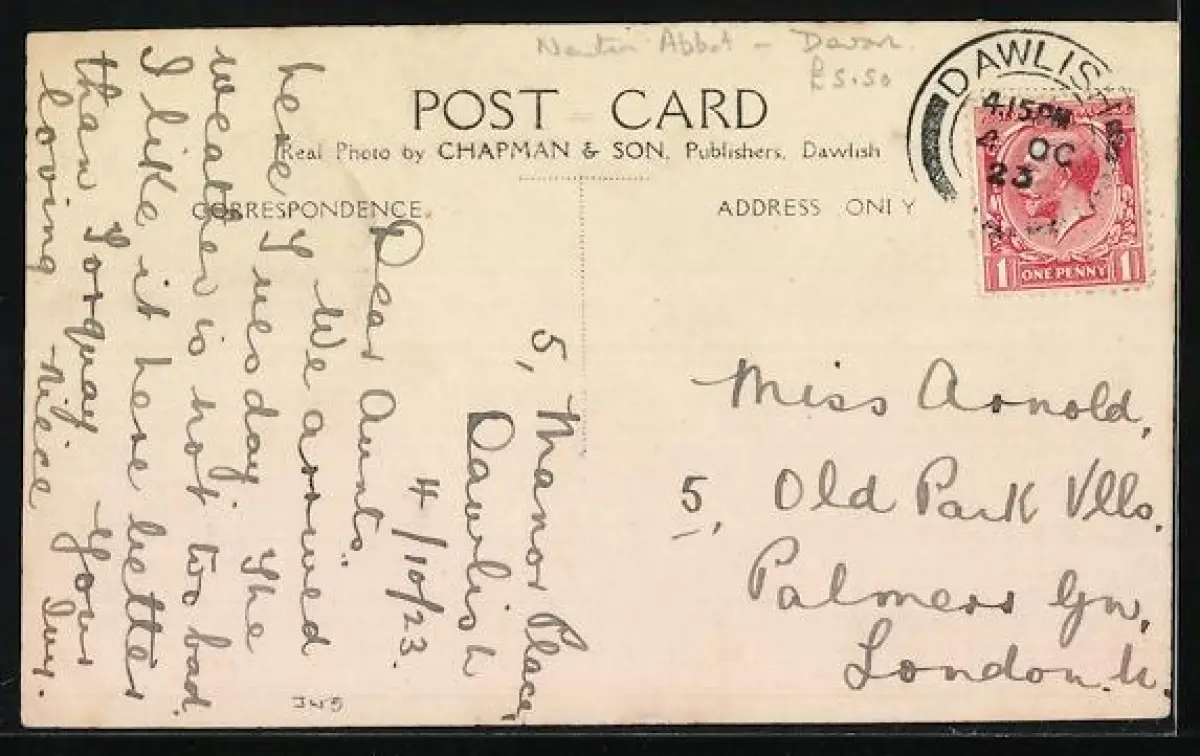 Newton Abbot - Devon
£5.50
POST CARD
Real Photo by CHAPMAN & SON, Publishers, Dawlish
CORRESPONDENCE.
ADDRESS ONLY
DAWLISH
4.15PM
4 OC
23
1 ONE PENNY 1
5, Manor Place,
Dawlish
4/10/23.
Dear Aunts,
We arrived
here Tuesday. The
weather is not too bad.
I like it here better
than Torquay. Your
loving Neice Ivy.
Miss Arnold,
5, Old Park Vlls.
Palmers Gn,
London. N.
JW5